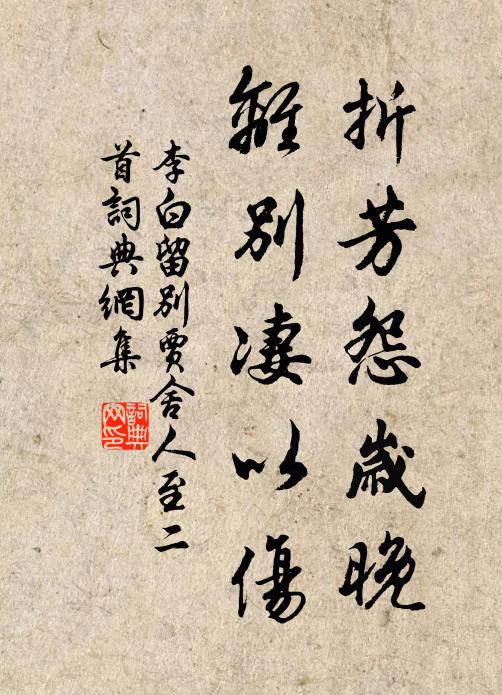 折芳怨歲晚
離別凄以傷
李白留別賈舍人至二
首詞典網集
詞典
网印